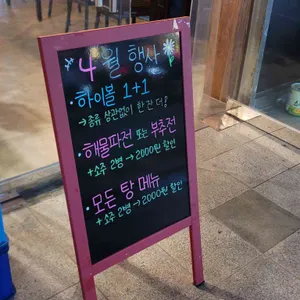 4월 행사
·하이볼 1+1
→종류 상관없이 한 잔 더!
·해물파전 또는 부추전
+소주 2병 → 2000원 할인
·모든 탕 메뉴
+소주 2병 → 2000원 할인